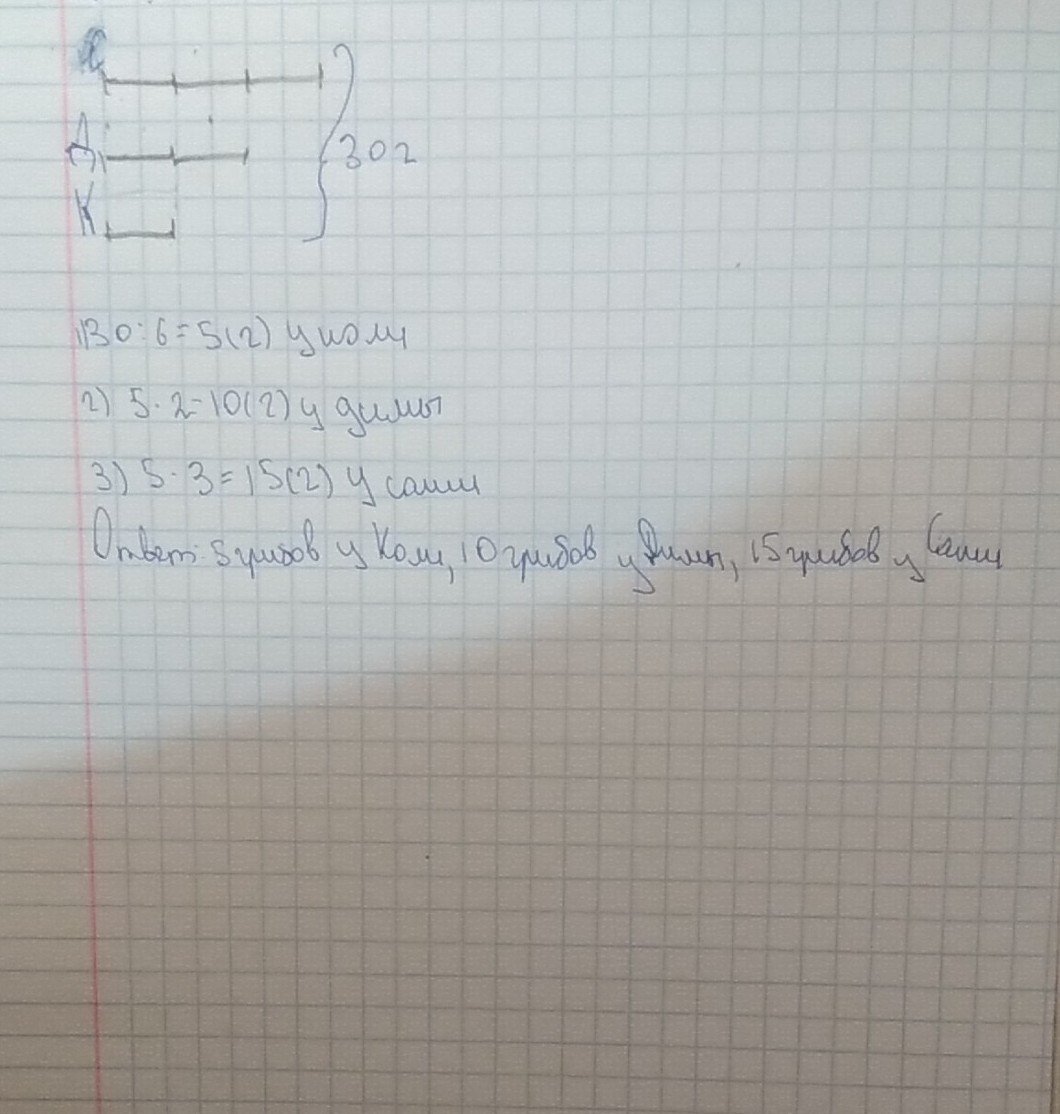 С
Д
30г
К
1) 30:6=5(г) у коли
2) 5·2=10(г) у димы
3) 5·3=15(г) у саши
Ответ: 5 грибов у Коли, 10 грибов у Димы, 15 грибов у Саши